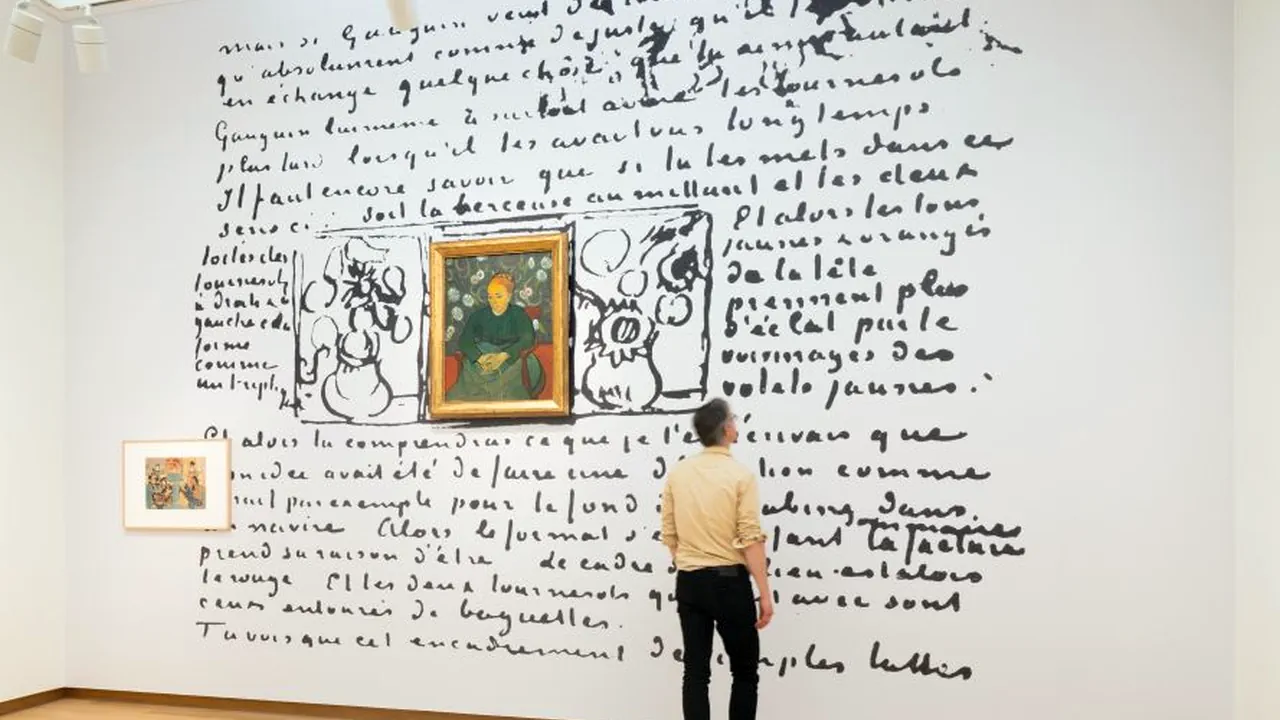 mais si Gauguin veut
qu'absolument comme de juste qu'il
en échange quelque chose que
Gauguin lui même a surtout aimé les tournesols
plus tard lorsqu'il les avait vus longtemps
Il faut encore savoir que si tu les mets dans ce
sens ci: soit la berceuse au milieu et les deux
toiles des
tournesols
à droite et à
gauche cela
forme
comme
un triptyque
Et alors les tons
jaunes & orangés
de la tête
prennent plus
d'éclat par le
voisinages des
volets jaunes.
Et alors tu comprendras ce que je t'en écrivais que
idée avait été de faire une comme
par exemple pour le fond cabine dans
navire Alors le format s'é la facture
sommaire
prend sa raison d'être de cadre est alors
le rouge Et les deux tournesols qui avec sont
ceux entourés de baguettes.
Tu vois que cet encadrement de simples lattes